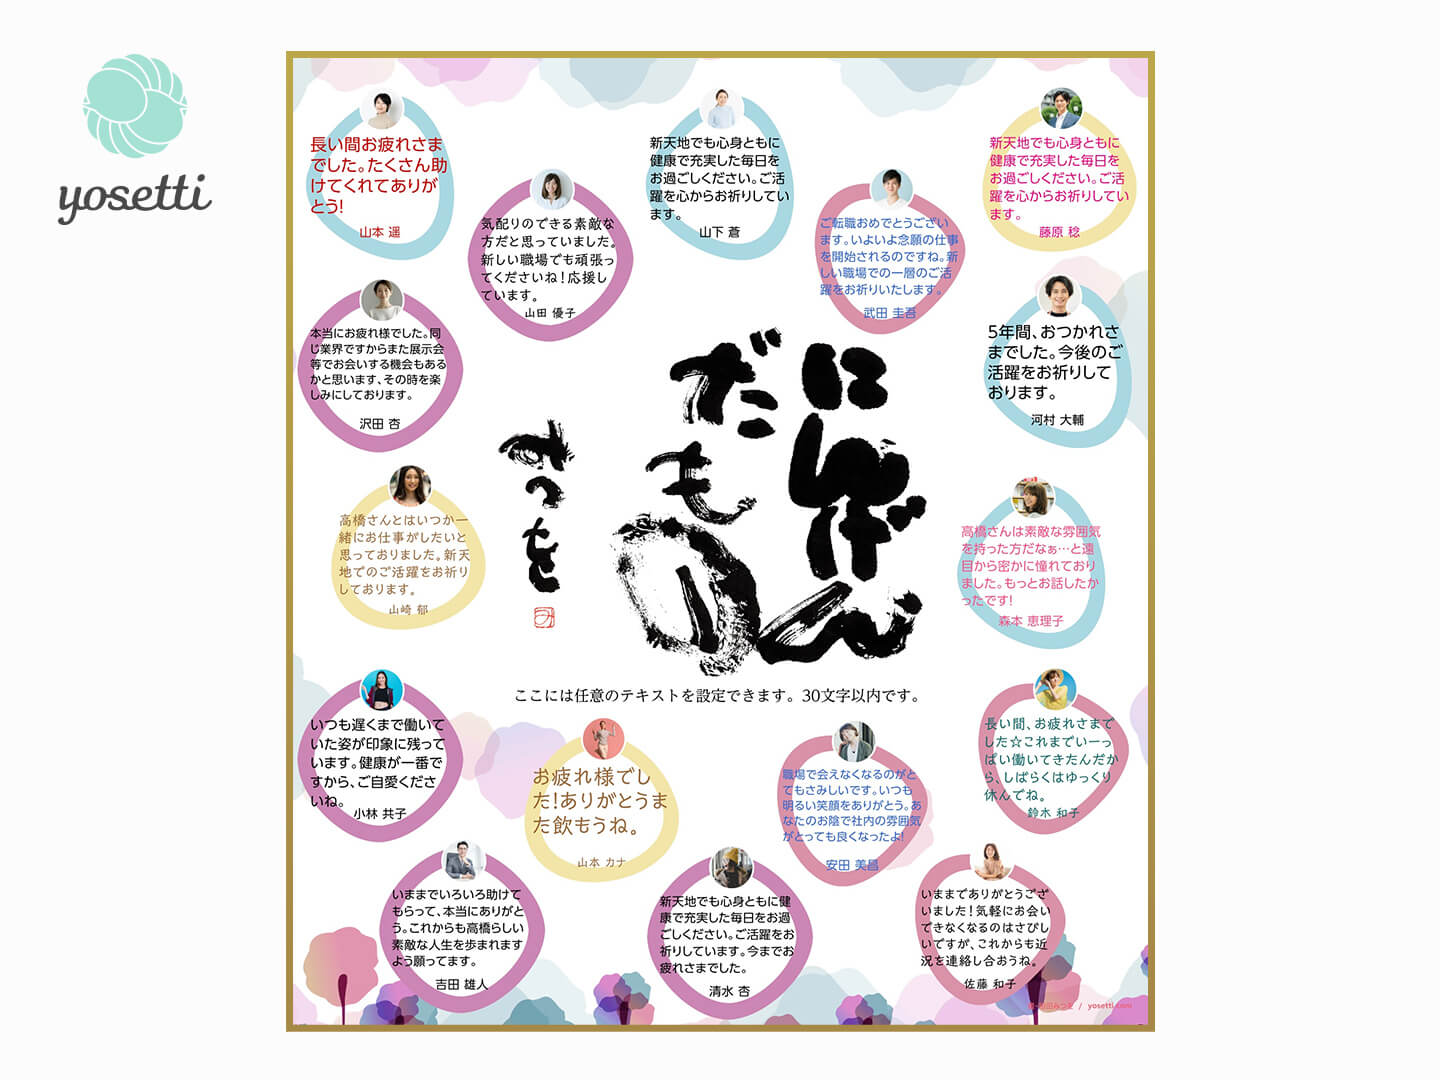 yosetti
長い間お疲れさま
でした。たくさん助
けてくれてありが
とう!
山本 遥
気配りのできる素敵な
方だと思っていました。
新しい職場でも頑張っ
てくださいね!応援し
ています。
山田 優子
新天地でも心身ともに
健康で充実した毎日を
お過ごしください。ご活
躍を心からお祈りしてい
ます。
山下 蒼
ご転職おめでとうござい
ます。いよいよ念願の仕事
を開始されるのですね。新
しい職場での一層のご活
躍をお祈りいたします。
武田 圭吾
新天地でも心身ともに
健康で充実した毎日を
お過ごしください。ご活
躍を心からお祈りしてい
ます。
藤原 稔
本当にお疲れ様でした。同
じ業界ですからまた展示会
等でお会いする機会もある
かと思います、その時を楽
しみにしております。
沢田 杏
5年間、おつかれさ
までした。今後のご
活躍をお祈りして
おります。
河村 大輔
にんげん
だもの
みつを
高橋さんとはいつか一
緒にお仕事がしたいと
思っておりました。新天
地でのご活躍をお祈り
しております。
山崎 郁
高橋さんは素敵な雰囲気
を持った方だなぁ…と遠
目から密かに憧れており
ました。もっとお話したか
ったです!
森本 恵理子
ここには任意のテキストを設定できます。30文字以内です。
いつも遅くまで働いて
いた姿が印象に残って
います。健康が一番で
すから、ご自愛くださ
いね。
小林 共子
お疲れ様でし
た!ありがとうま
た飲もうね。
山本 カナ
職場で会えなくなるのがと
てもさみしいです。いつも
明るい笑顔をありがとう。あ
なたのお陰で社内の雰囲気
がとっても良くなったよ!
安田 美昌
長い間、お疲れさまで
した☆これまでいーっ
ぱい働いてきたんだか
ら、しばらくはゆっくり
休んでね。
鈴木 和子
いままでいろいろ助けて
もらって、本当にありがと
う。これからも高橋らしい
素敵な人生を歩まれます
よう願ってます。
吉田 雄人
新天地でも心身ともに健
康で充実した毎日をお過
ごしください。ご活躍をお
祈りしています。今までお
疲れさまでした。
清水 杏
いままでありがとうござ
いました!気軽にお会い
できなくなるのはさびし
いですが、これからも近
況を連絡し合おうね。
佐藤 和子
みつを / yosetti.com